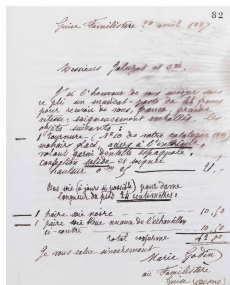 82
Guise Familistère 20 avril 1887
Messieurs Jaluzot et Cie.
J'ai l'honneur de vous
ce pli un mandat-poste de 42 francs
pour envoi de vous, franco, grande
vitesse, soigneusement emballés, les
objets suivants :
1 Tournure (No 10 de votre catalogue
mohair glacé,
volant garni dentelle espagnole,
confection solide et soignée
hauteur 0 m 21,
Bas soie (à jours si possible) pour dame
longueur de pied 24 centimètres :
1 paire soie noire — 10,50
1 paire soie nuance de l'échantillon
ci-contre 10,50
Total conforme 42,00
Je vous salue sincèrement
Marie Godin
au Familistère
Guise (Aisne)